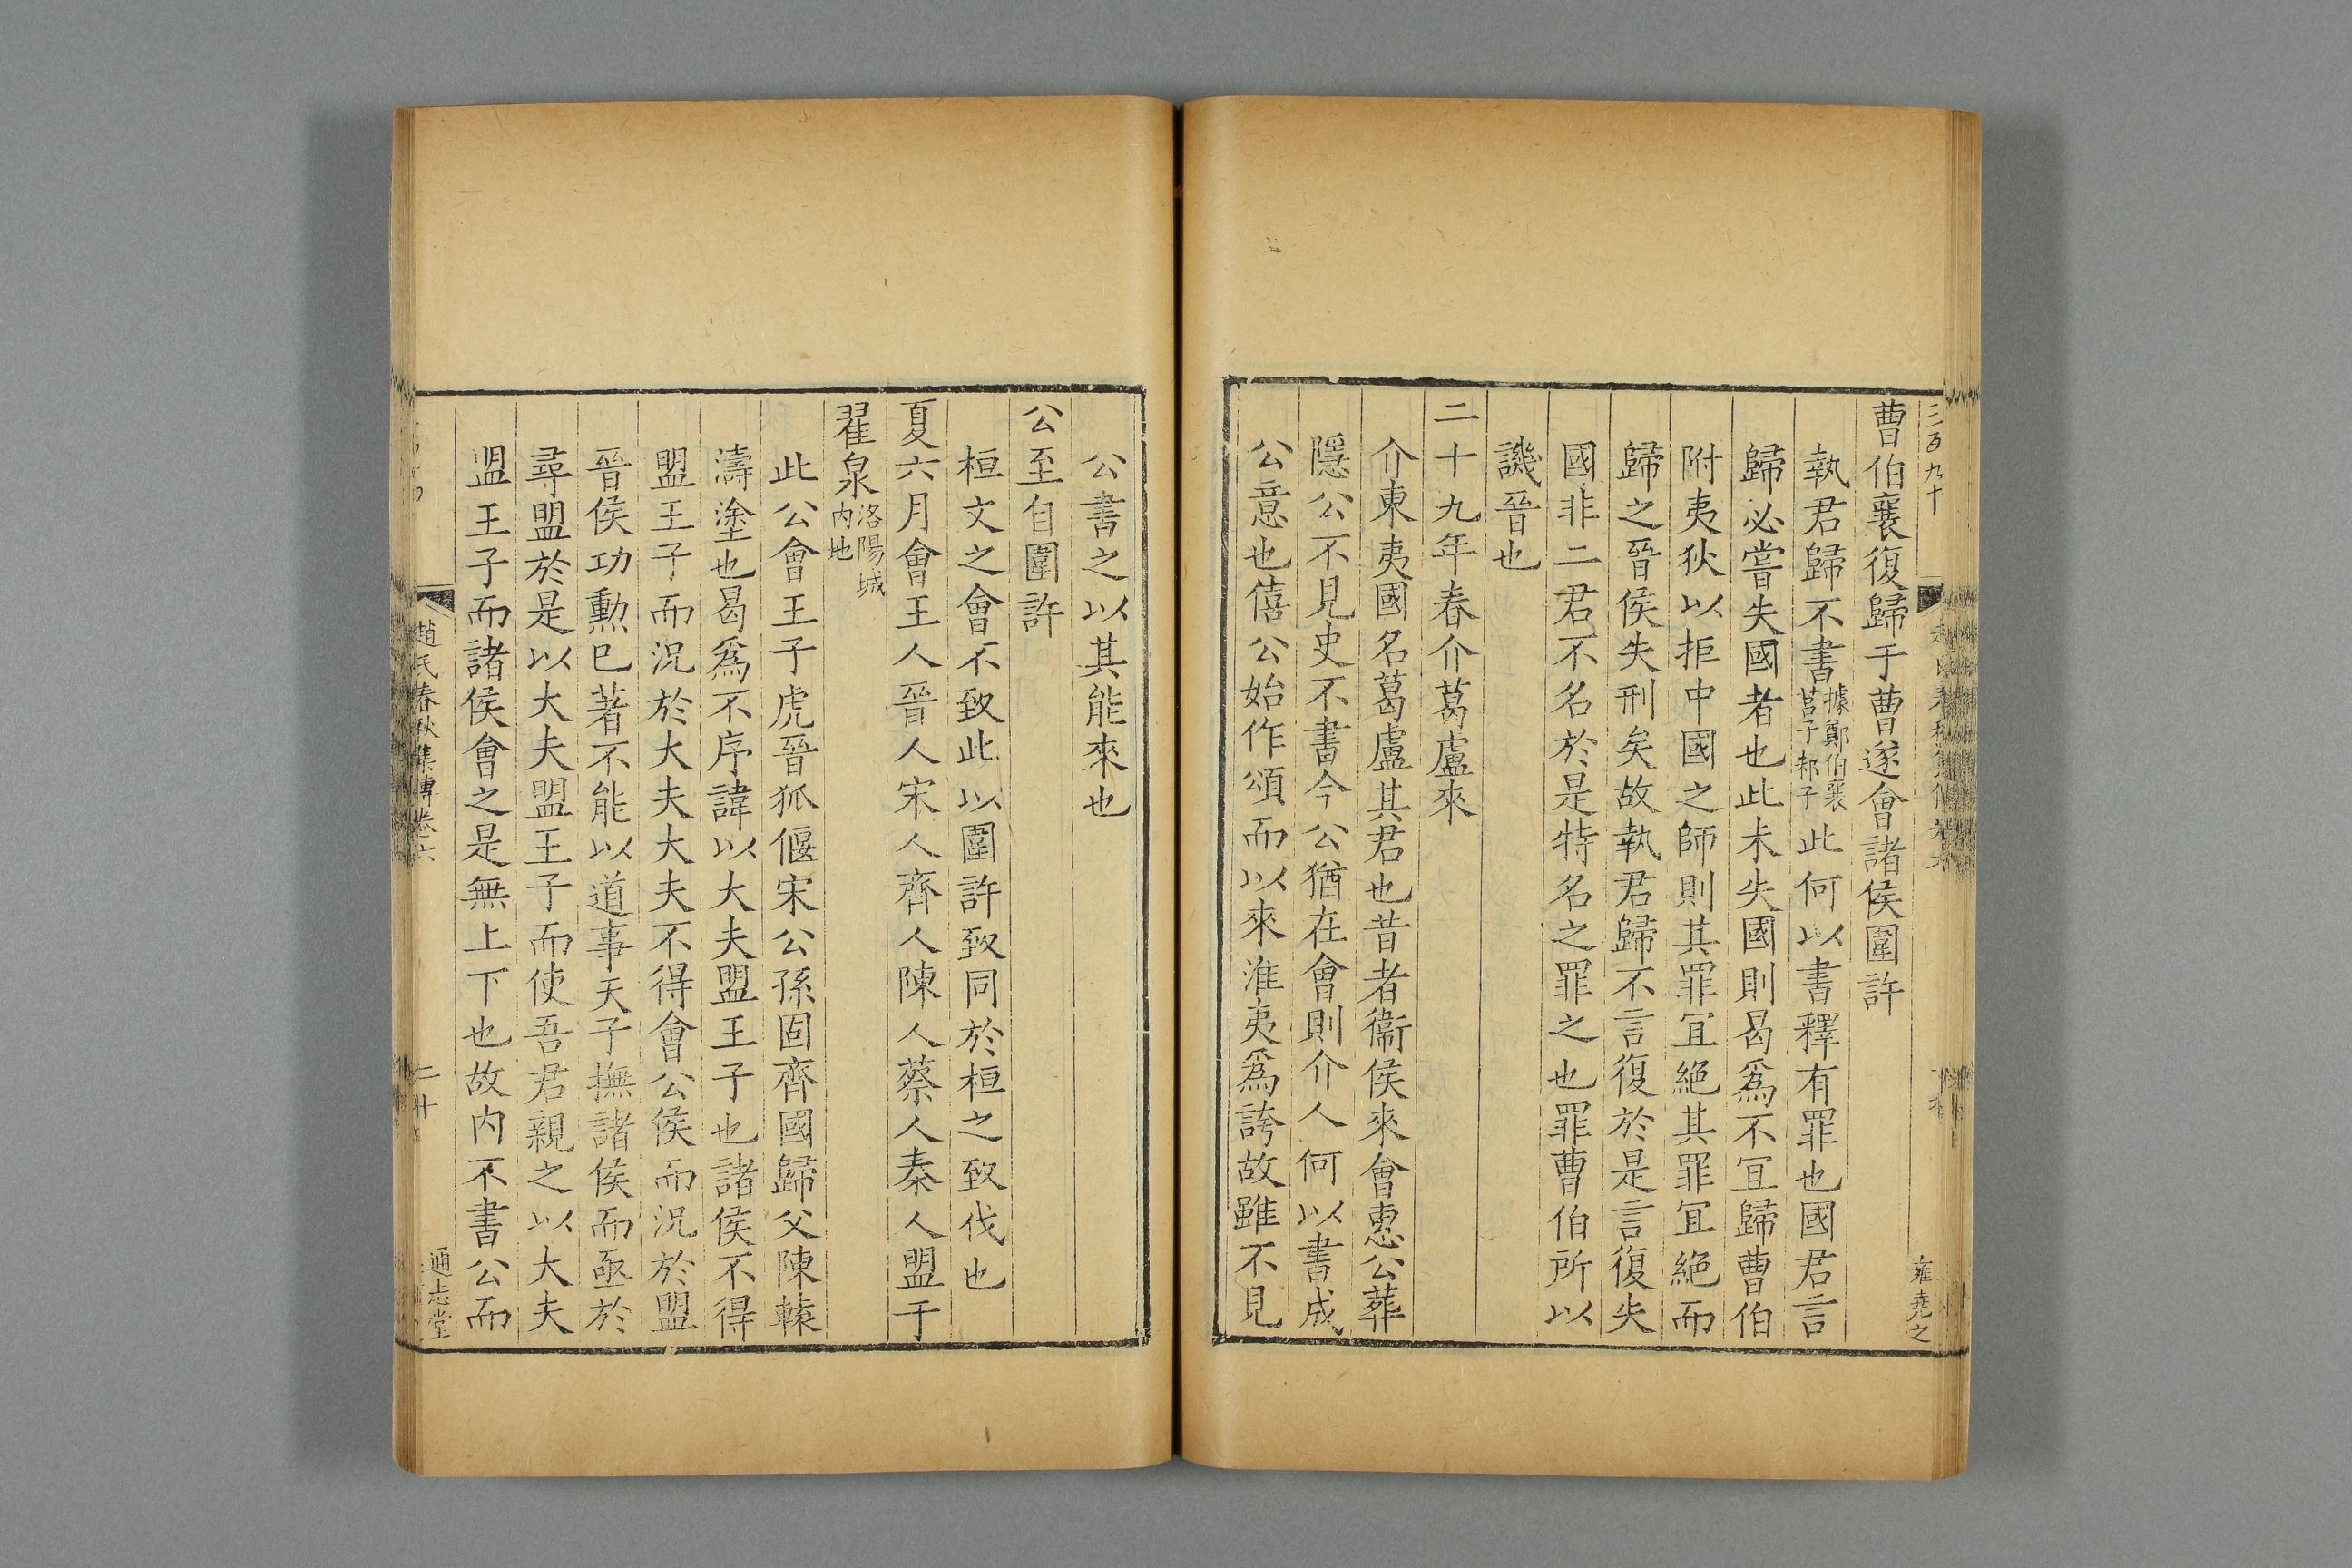 三百九十
雍堯之
曹伯襄復歸于曹遂會諸侯圍許
執君歸不書據鄭伯襄莒子邾子此何以書釋有罪也國君言
歸必嘗失國者也此未失國則曷爲不冝歸曹伯
附夷狄以拒中國之師則其罪冝絕其罪冝絕而
歸之晉侯失刑矣故執君歸不言復於是言復失
國非二君不名於是特名之罪之也罪曹伯所以
譏晉也
二十九年春介葛盧來
介東夷國名葛盧其君也昔者衞侯來會惠公葬
隱公不見史不書今公猶在會則介人何以書成
公意也僖公始作頌而以來淮夷爲誇故雖不見
公書之以其能來也
公至自圍許
桓文之會不致此以圍許致同於桓之致伐也
夏六月會王人晉人宋人齊人陳人蔡人秦人盟于
翟泉洛陽城内地
此公會王子虎晉狐偃宋公孫固齊國歸父陳轅
濤塗也曷爲不序諱以大夫盟王子也諸侯不得
盟王子而況於大夫大夫不得會公侯而況於盟
晉侯功勲巳著不能以道事天子撫諸侯而亟於
尋盟於是以大夫盟王子而使吾君親之以大夫
盟王子而諸侯會之是無上下也故内不書公而
趙氏春秋集傳卷六
二十
通志堂